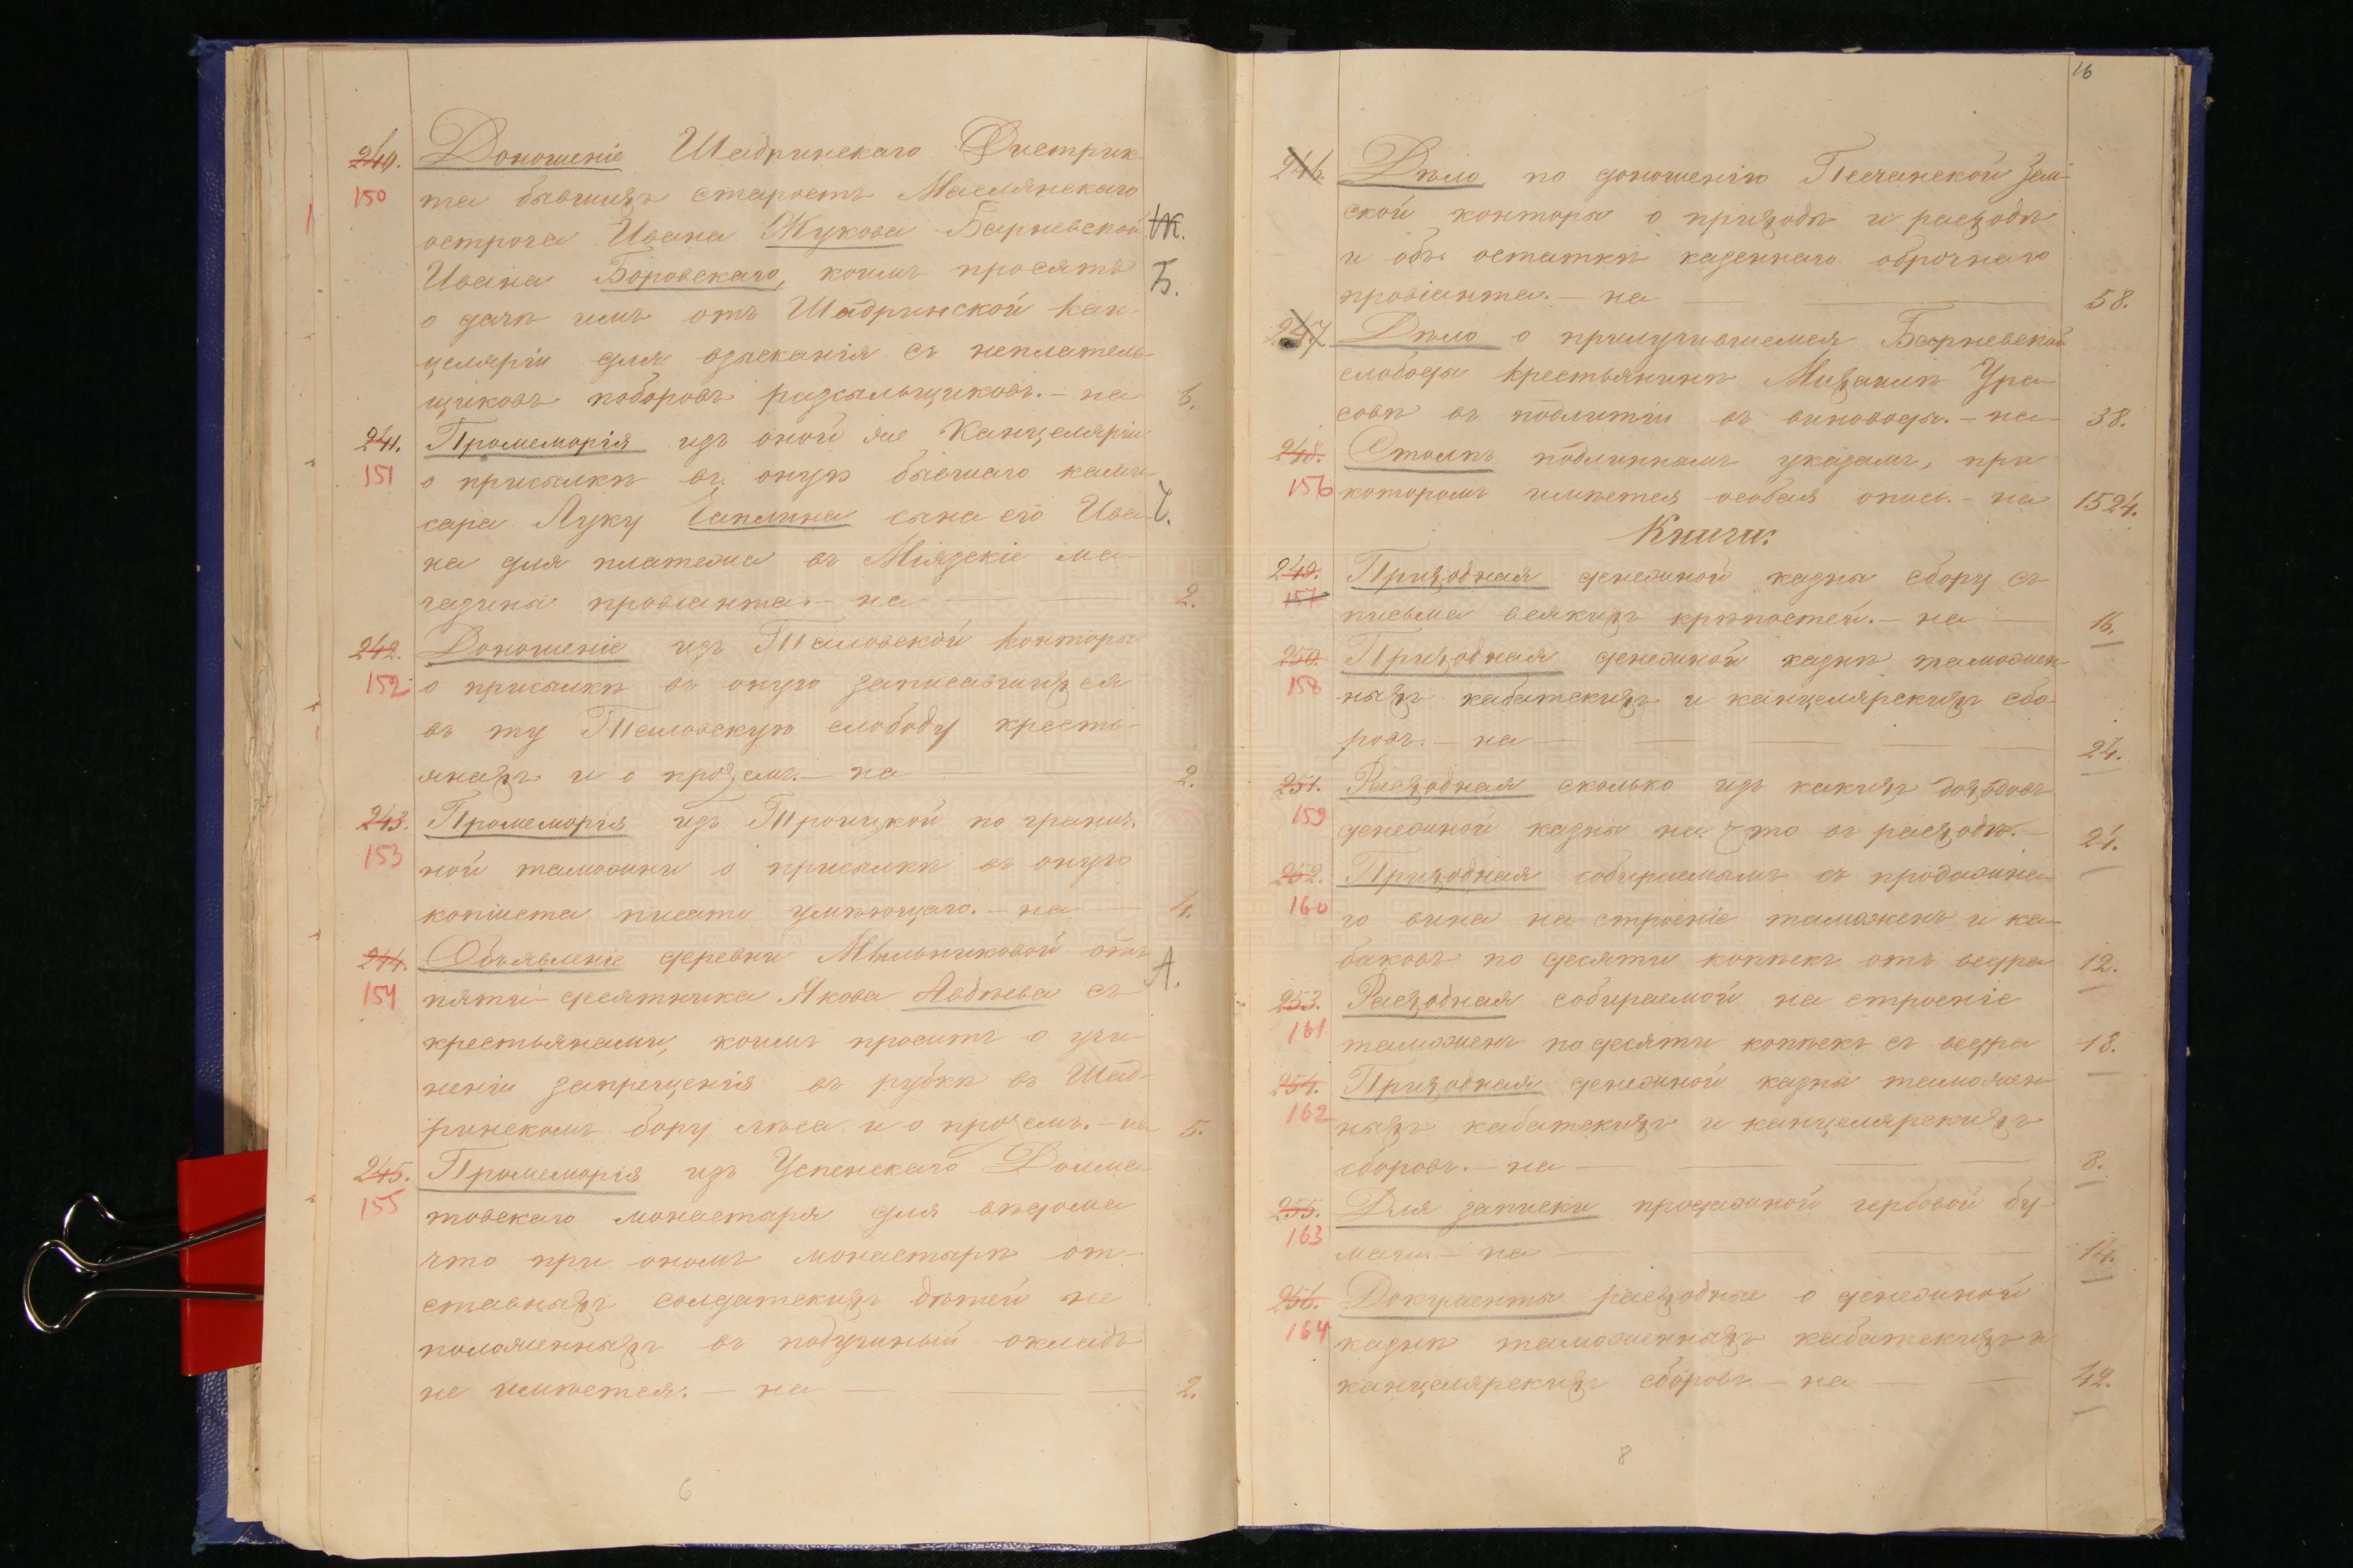 240. Доношеніе Шадринскаго Дистрик-
150 та бывшихъ старостъ Маслянскаго
острога Ивана Жукова Барневской Ж.
Ивана Боровскаго, коимъ просятъ Б.
о дачѣ имъ отъ Шадринской кан-
целяріи для взысканія съ неплатель-
щиковъ поборовъ разсыльщиковъ. – на 6.
241. Промеморія изъ оной же Канцеляріи
151 о присылкѣ въ оную бывшаго коми-
сара Луку Чаплина сына его Ива- Ч.
на для платежа въ Міязскіе ма-
газины провіанта. – на 2.
242. Доношеніе изъ Теловской конторы
152 о присылкѣ въ оную записавшихся
въ ту Теловскую слободу кресть-
янахъ и о прочемъ. – на 2.
243. Промеморія изъ Троицкой по гранич-
153 ной таможни о присылкѣ въ оную
копіиста писать умѣющаго. – на 4.
244. Объявленіе деревни Мыльниковой отъ А.
154 пяти-десятника Якова Авдѣева съ
крестьянами, коимъ проситъ о учи-
неніи запрещенія въ рубкѣ въ Шад-
ринскомъ бору лѣса и о прочемъ. – на 5.
245. Промеморія изъ Успенскаго Долма-
155 товскаго монастыря для вѣдома
что при ономъ монастырѣ от-
ставныхъ солдатскихъ дѣтей не
положенныхъ въ подушный окладъ
не имѣется. – на 2.
6
16
246. Дѣло по доношенію Песчанской Зем-
ской конторы о приходѣ и расходѣ
и объ остаткѣ казеннаго оброчнаго
провіанта. – на 58.
247. Дѣло о прилучившемся Барневской
слободы крестьянинѣ Михаилѣ Ура-
совѣ въ подлитіи въ вино воды. – на 38.
248. Столпъ подлиннымъ указамъ, при
156 которомъ имѣется особая опись. – на 1524.
Книги:
249. Приходная денежной казны сбору съ
157 письма всякихъ крѣпостей. – на 16.
250. Приходная денежной казнѣ таможен-
158 ныхъ кабатскихъ и канцелярскихъ сбо-
ровъ. – на 24.
251. Расходная сколько изъ какихъ доходовъ
159 денежной казны на что въ расходѣ. – 24.
252. Приходная собираемымъ съ продажна-
160 го вина на строеніе таможенъ и ка-
баковъ по десяти копѣекъ отъ ведра 12.
253. Расходная собираемой на строеніе
161 таможенъ по десяти копѣекъ съ ведра 18.
254. Приходная денежной казны таможен-
162 ныхъ кабатскихъ и канцелярскихъ
сборовъ. – на 8.
255. Для записки продажной гербовой бу-
163 маги. – на 14.
256. Документы расходные о денежной
164 казнѣ таможенныхъ кабатскихъ и
канцелярскихъ сборовъ – на 42.
8